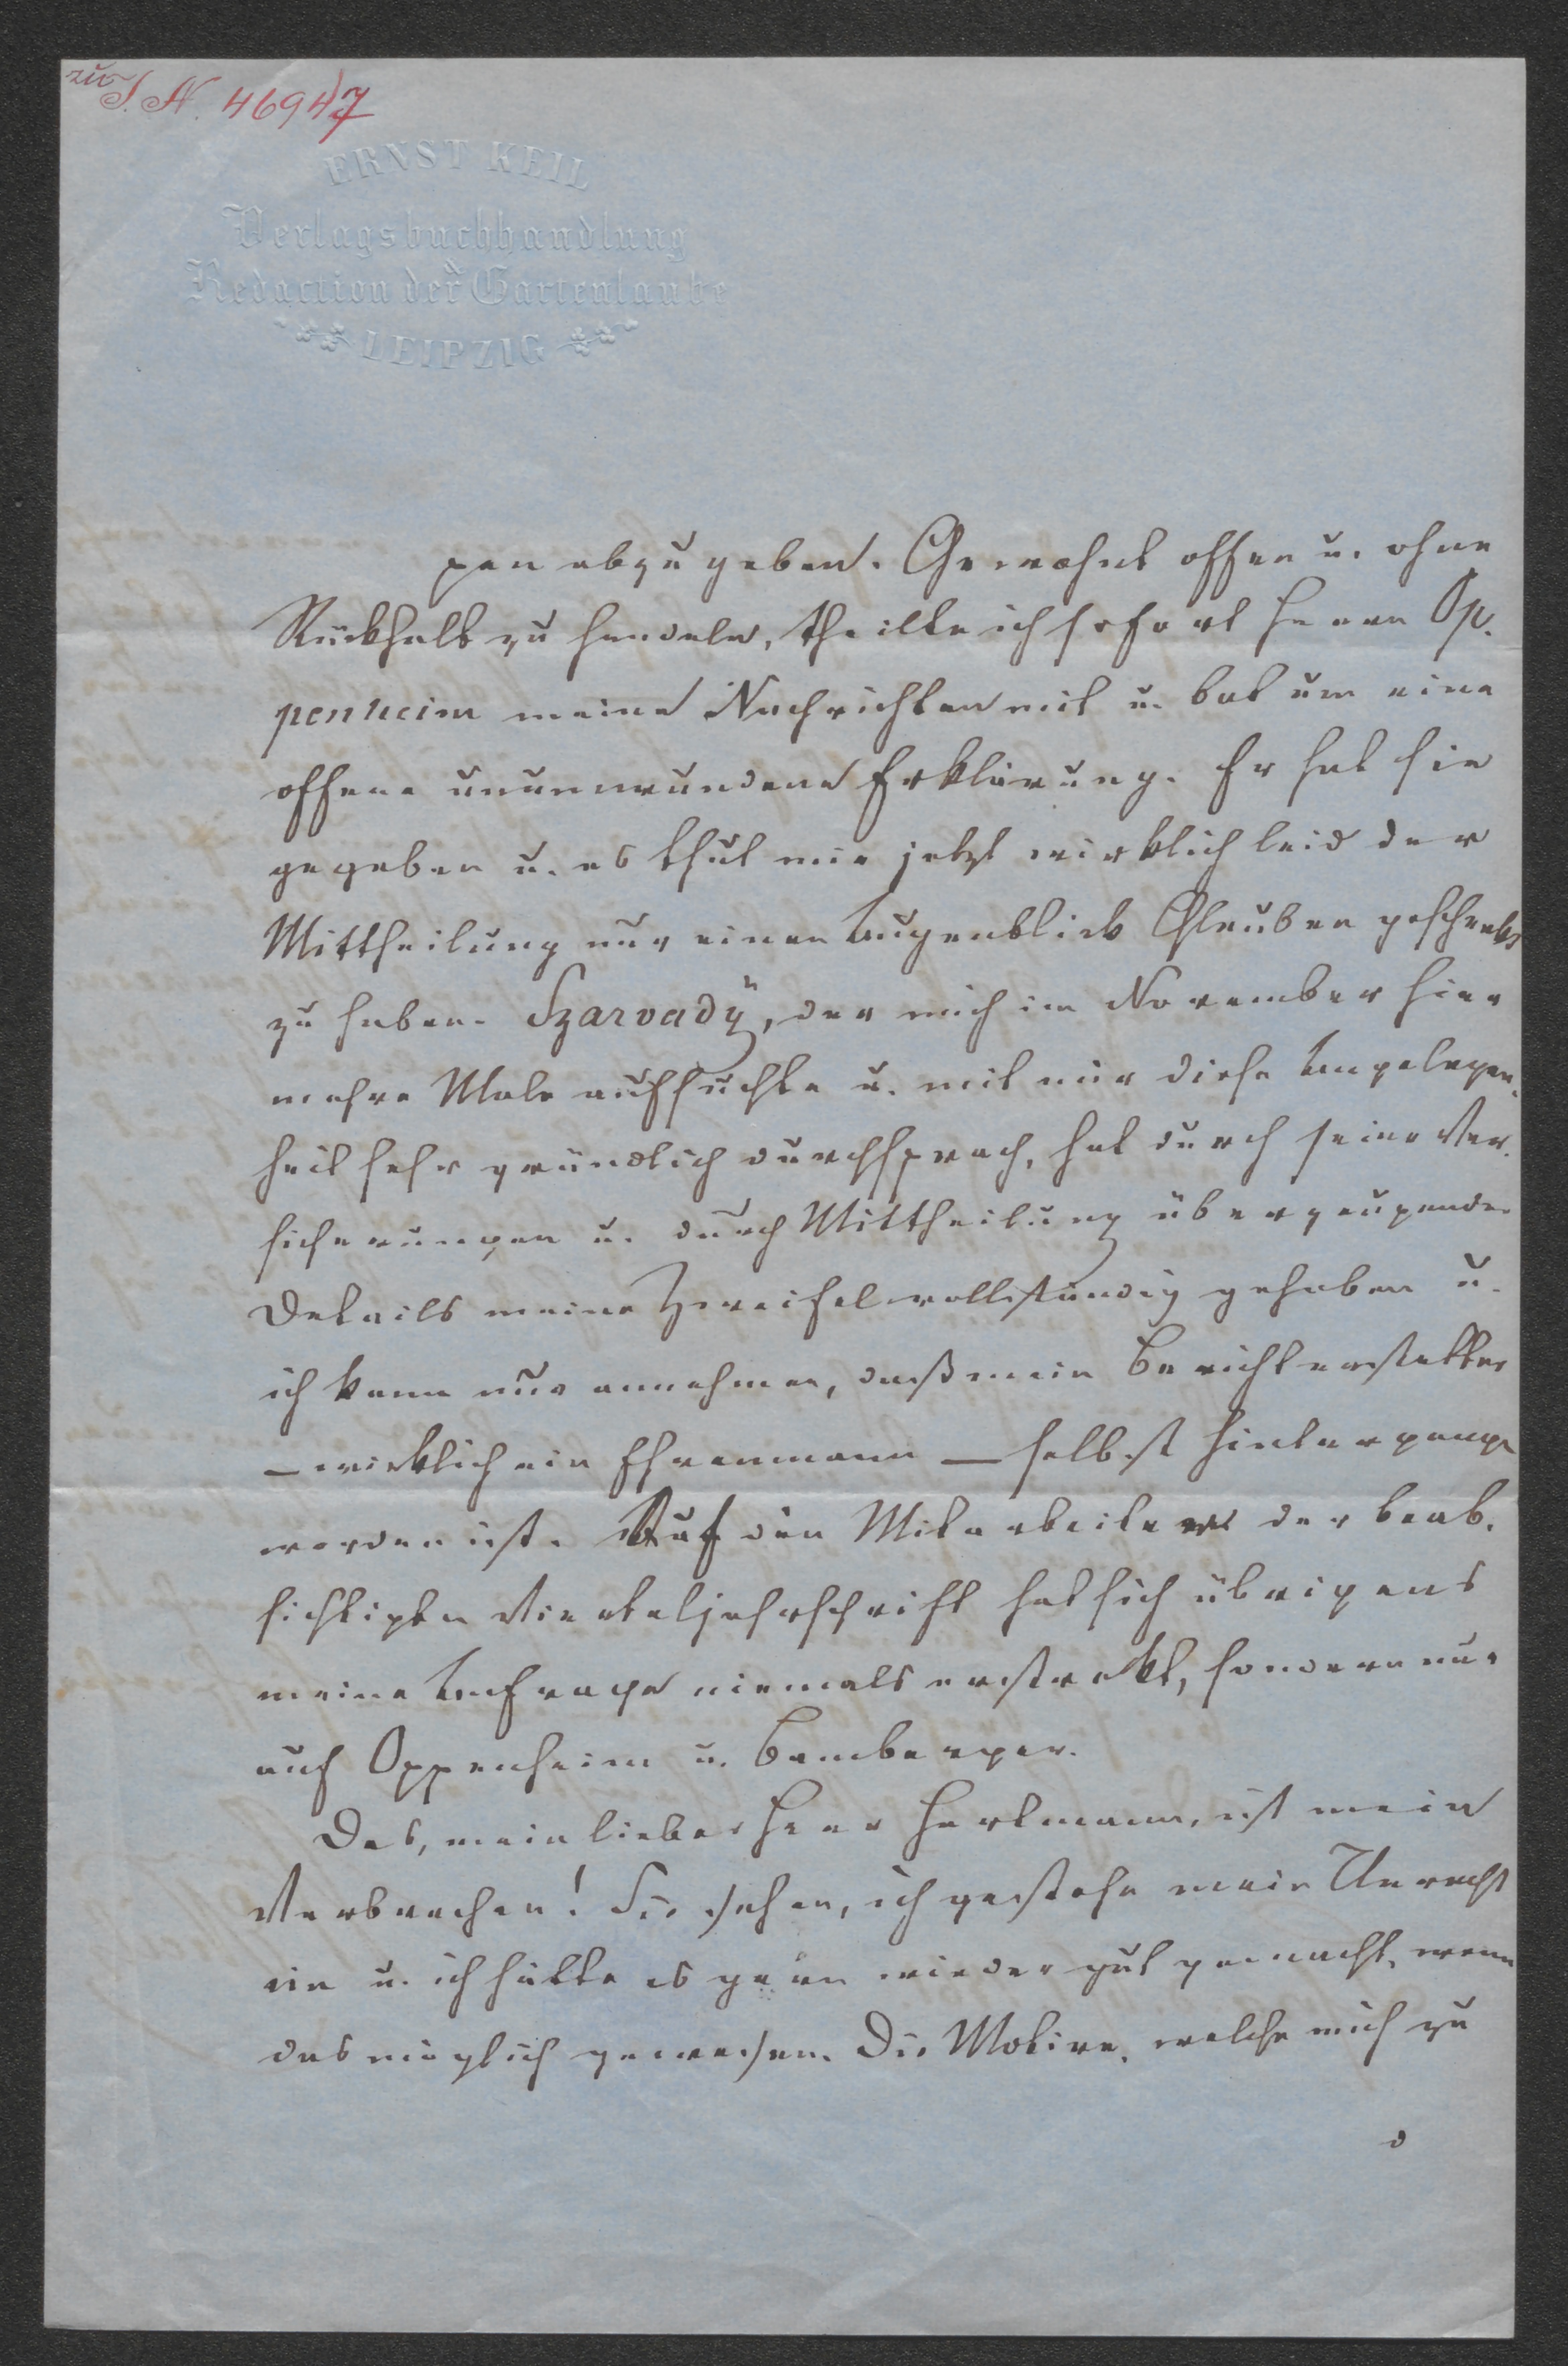 zu I. N. 46947
ERNST KEIL
Verlagsbuchhandlung
Redaction der Gartenlaube
LEIPZIG
gen abzugeben. Gewohnt offen u. ohne
Rückhalt zu handeln, theilte ich sofort Herrn Op-
penheim meine Nachrichten mit u. bat um eine
offene unumwundene Erklärung. Er hat sie
gegeben u. es thut mir jetzt wirklich leid der
Mittheilung nur einen Augenblick Glauben geschenkt
zu haben. Szarvady, der mich im November hier
mehre Male aufsuchte u. mit mir diese Angelegen-
heit sehr gründlich durchsprach, hat durch seine Ver-
sicherungen u. durch Mittheilung überzeugender
Details meine Zweifel vollständig gehoben u.
ich kann nur annehmen, daß mein Berichterstatter
— wirklich ein Ehrenmann — selbst hintergangen
worden ist. Auf den Mitarbeiter der beab-
sichtigten Vierteljahrschrift hat sich übrigens
meine Anfrage niemals erstreckt, sondern nur
auf Oppenheim u. Bamberger.
Das, mein lieber Herr Hartmann, ist mein
Verbrechen! Sie sehen, ich gestehe mein Unrecht
ein u. ich hätte es gern wieder gut gemacht, wenn
das möglich gewesen. Die Motive, welche mich zu